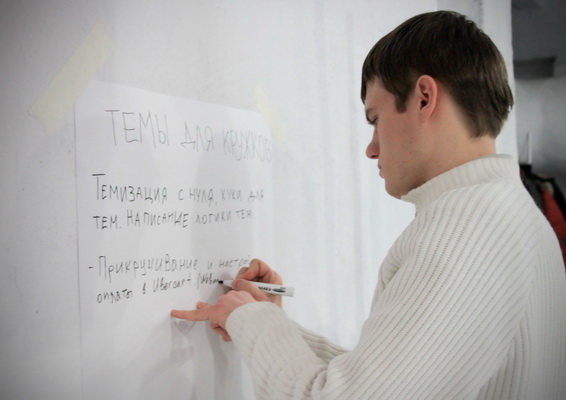 ТЕМЫ ДЛЯ КРУЖКОВ
ТЕМИЗАЦИЯ С НУЛЯ, ХУКИ ДЛЯ
ТЕМ. НАПИСАНИЕ ЛОГИКИ ТЕМ
- Прикручивание и настрой
оплаты в Ubercart